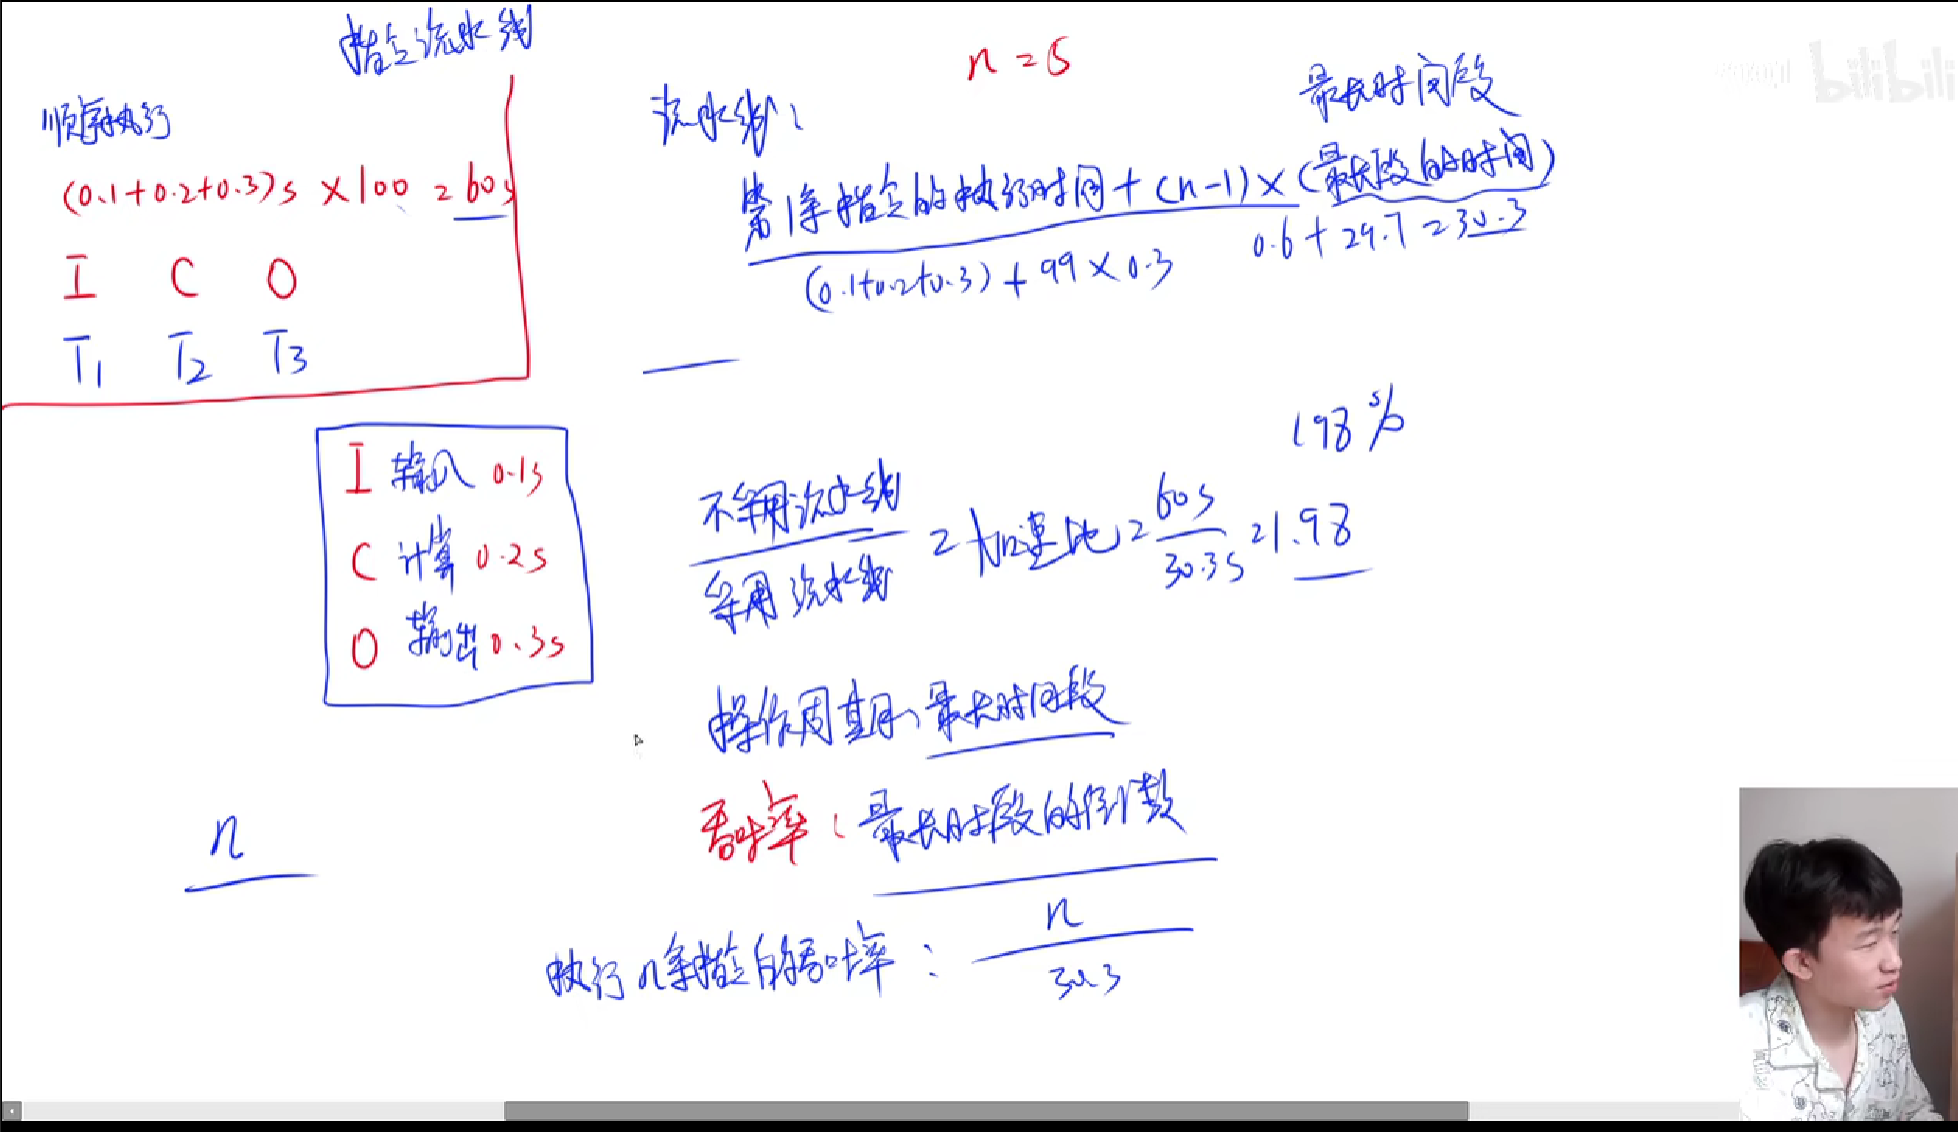 指令流水线
顺序执行
(0.1+0.2+0.3)s ×100 = 60s
I C O
T1 T2 T3
I 输入 0.1s
C 计算 0.2s
O 输出 0.3s
n
n = 5
流水线:
最长时间段
第1条指令的执行时间 + (n-1) × (最长段的时间)
(0.1+0.2+0.3) + 99 × 0.3
0.6 + 29.7 = 30.3
198%
不采用流水线
采用流水线
= 加速比 = 60s / 30.3s = 1.98
操作周期: 最长时间段
吞吐率: 最长时段的倒数
执行n条指令的吞吐率: n / 30.3
bilibili